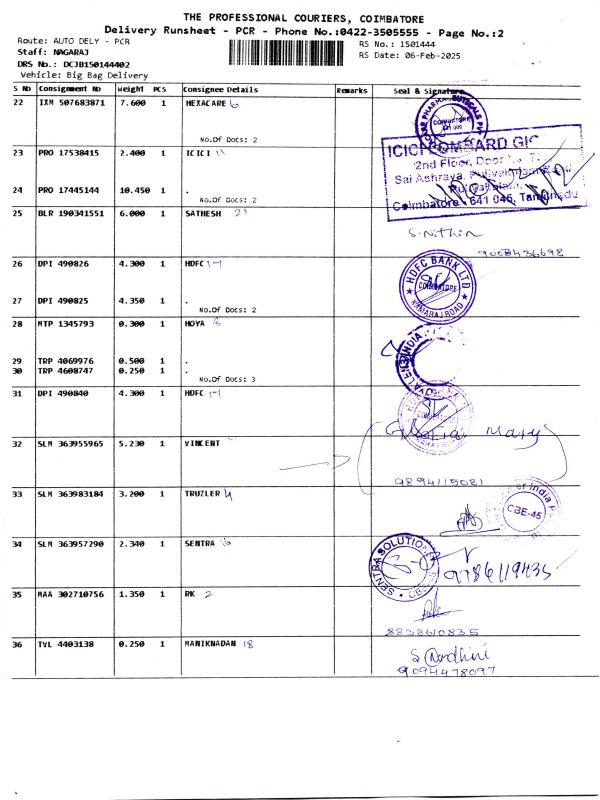 THE PROFESSIONAL COURIERS, COIMBATORE
Delivery Runsheet - PCR - Phone No.:0422-3505555 - Page No.:2
Route: AUTO DELY - PCR
RS No.: 1501444
Staff: NAGARAJ
RS Date: 06-Feb-2025
DRS No.: DCJB150144402
Vehicle: Big Bag Delivery
S No Consignment No Weight PCS Consignee Details Remarks Seal & Signature
22 IXM 507683871 7.600 1 HEXACARE 6
No.Of Docs: 2
COIMBATORE
23 PRO 17538415 2.400 1 ICICI 11
ICICI LOMBARD GIC
2nd Floor, Door No
Sai Ashraya,
24 PRO 17445144 10.450 1 .
No.Of Docs: 2
Coimbatore 641 045, Tamilnadu
25 BLR 190341551 6.000 1 SATHESH 21
S. Nithin
26 DPI 490826 4.300 1 HDFC 14
HDFC BANK LTD
COIMBATORE
KAMARAJ ROAD
27 DPI 490825 4.350 1 .
No.Of Docs: 2
28 MTP 1345793 0.300 1 HOYA
29 TRP 4069976 0.500 1 .
30 TRP 4608747 0.250 1 .
No.Of Docs: 3
31 DPI 490840 4.300 1 HDFC 14
Mary
32 SLM 363955965 5.230 1 VINCENT
9894115081
33 SLM 363983184 3.200 1 TRUZLER 4
of India
CBE-45
34 SLM 363957290 2.340 1 SENTRA 16
SENTRA SOLUTION
9786119435
35 MAA 302710756 1.350 1 RK 2
8838610835
36 TVL 4403138 0.250 1 MANIKNADAN 18
9094478097